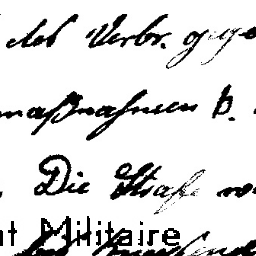 des Verbr. gege
maßnahmen b.
. Die Strafe w
nt Militaire